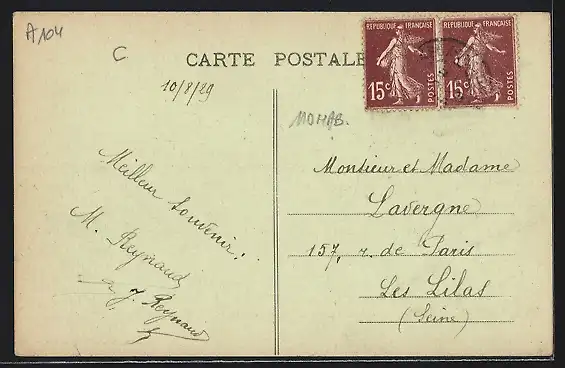 A104
C
CARTE POSTALE
REPUBLIQUE FRANÇAISE
15c POSTES
REPUBLIQUE FRANÇAISE
15c POSTES
10/8/29
Meilleur souvenir.
M. Reynaud
J. Reynaud
Monsieur et Madame
Lavergne
157, r. de Paris
Les Lilas
(Seine)